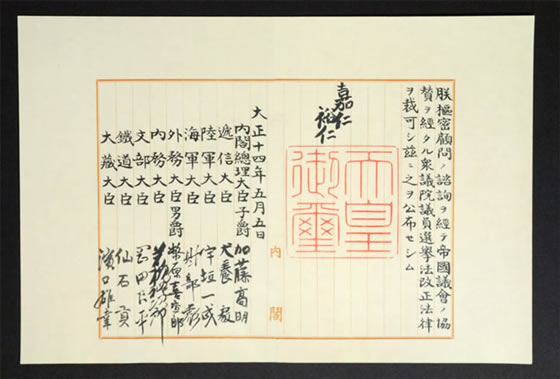 朕樞密顧問ノ諮詢ヲ經テ帝國議會ノ協
贊ヲ經タル衆議院議員選擧法改正法律
ヲ裁可シ茲ニ之ヲ公布セシム
嘉仁
裕仁
天皇
御璽
内閣
大正十四年五月五日
内閣總理大臣子爵 加藤高明
遞信大臣 犬養毅
陸軍大臣 宇垣一成
海軍大臣 財部彪
外務大臣男爵 幣原喜重郎
内務大臣 若槻禮次郎
文部大臣 岡田良平
鐵道大臣 仙石貢
大藏大臣 濱口雄幸